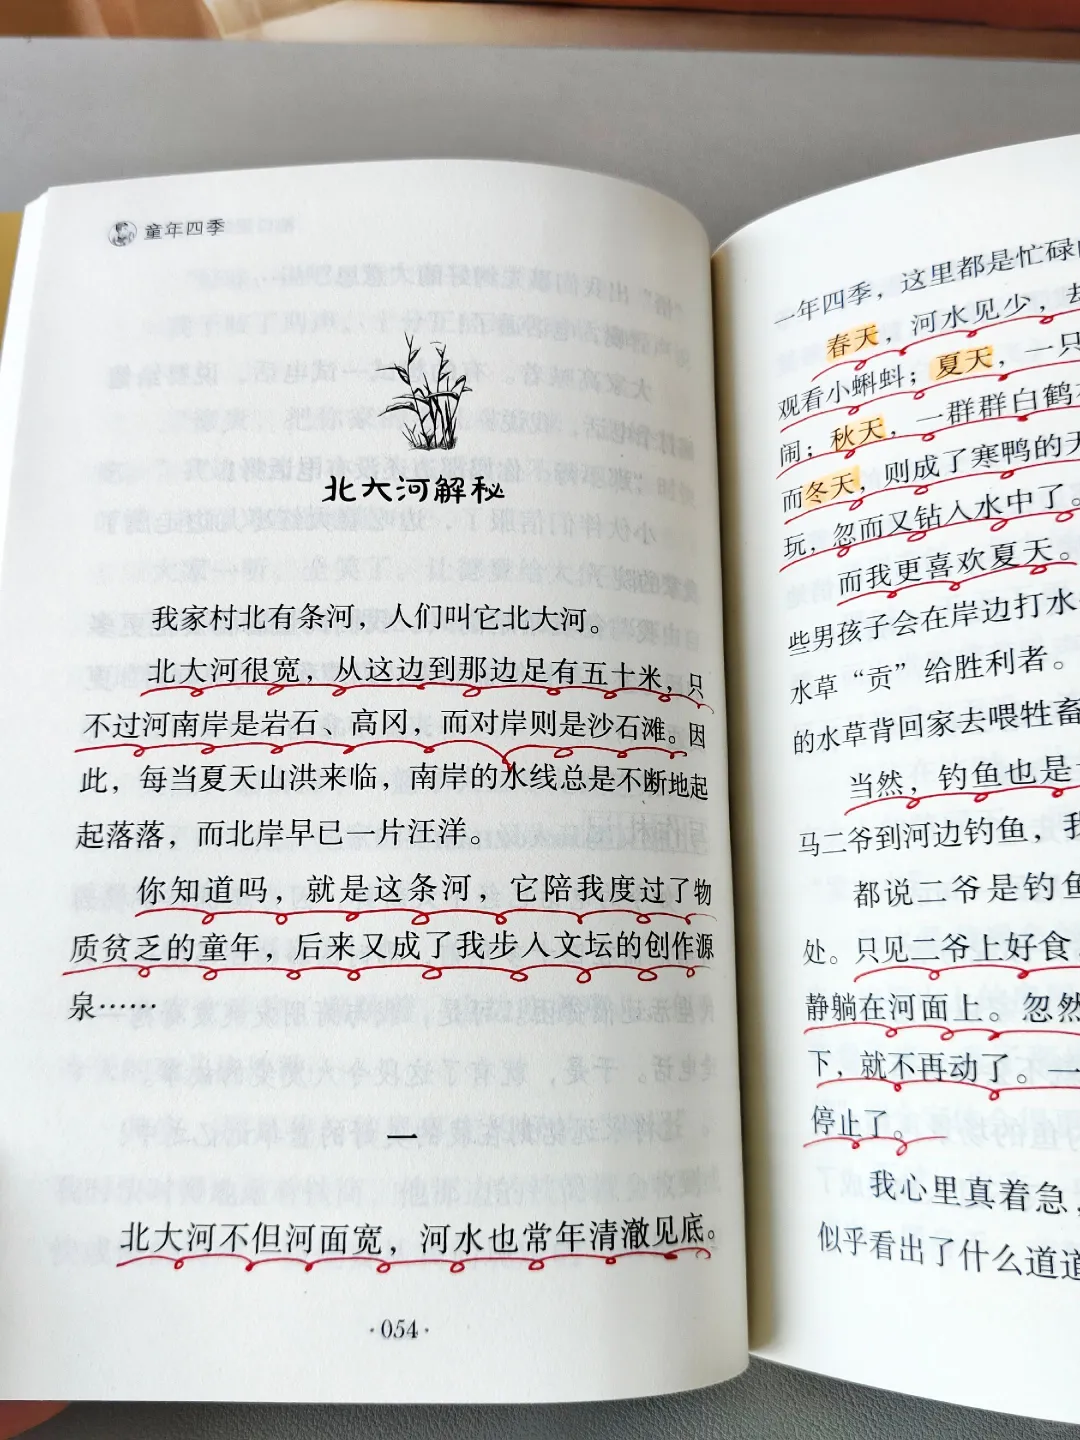 童年四季
北大河解秘
我家村北有条河，人们叫它北大河。
北大河很宽，从这边到那边足有五十米，只
不过河南岸是岩石、高冈，而对岸则是沙石滩。因
此，每当夏天山洪来临，南岸的水线总是不断地起
起落落，而北岸早已一片汪洋。
你知道吗，就是这条河，它陪我度过了物
质贫乏的童年，后来又成了我步入文坛的创作源
泉……
一
北大河不但河面宽，河水也常年清澈见底。
·054·
一年四季，这里都是忙碌
春天，河水见少，
观看小蝌蚪；夏天，一只
闹；秋天，一群群白鹤
而冬天，则成了寒鸭的天
玩，忽而又钻入水中了。
而我更喜欢夏天。
些男孩子会在岸边打水
水草“贡”给胜利者。
的水草背回家去喂牲畜
当然，钓鱼也是
马二爷到河边钓鱼，我
都说二爷是钓鱼
处。只见二爷上好食，
静躺在河面上。忽然
下，就不再动了。一
停止了。
我心里真着急，
似乎看出了什么道道